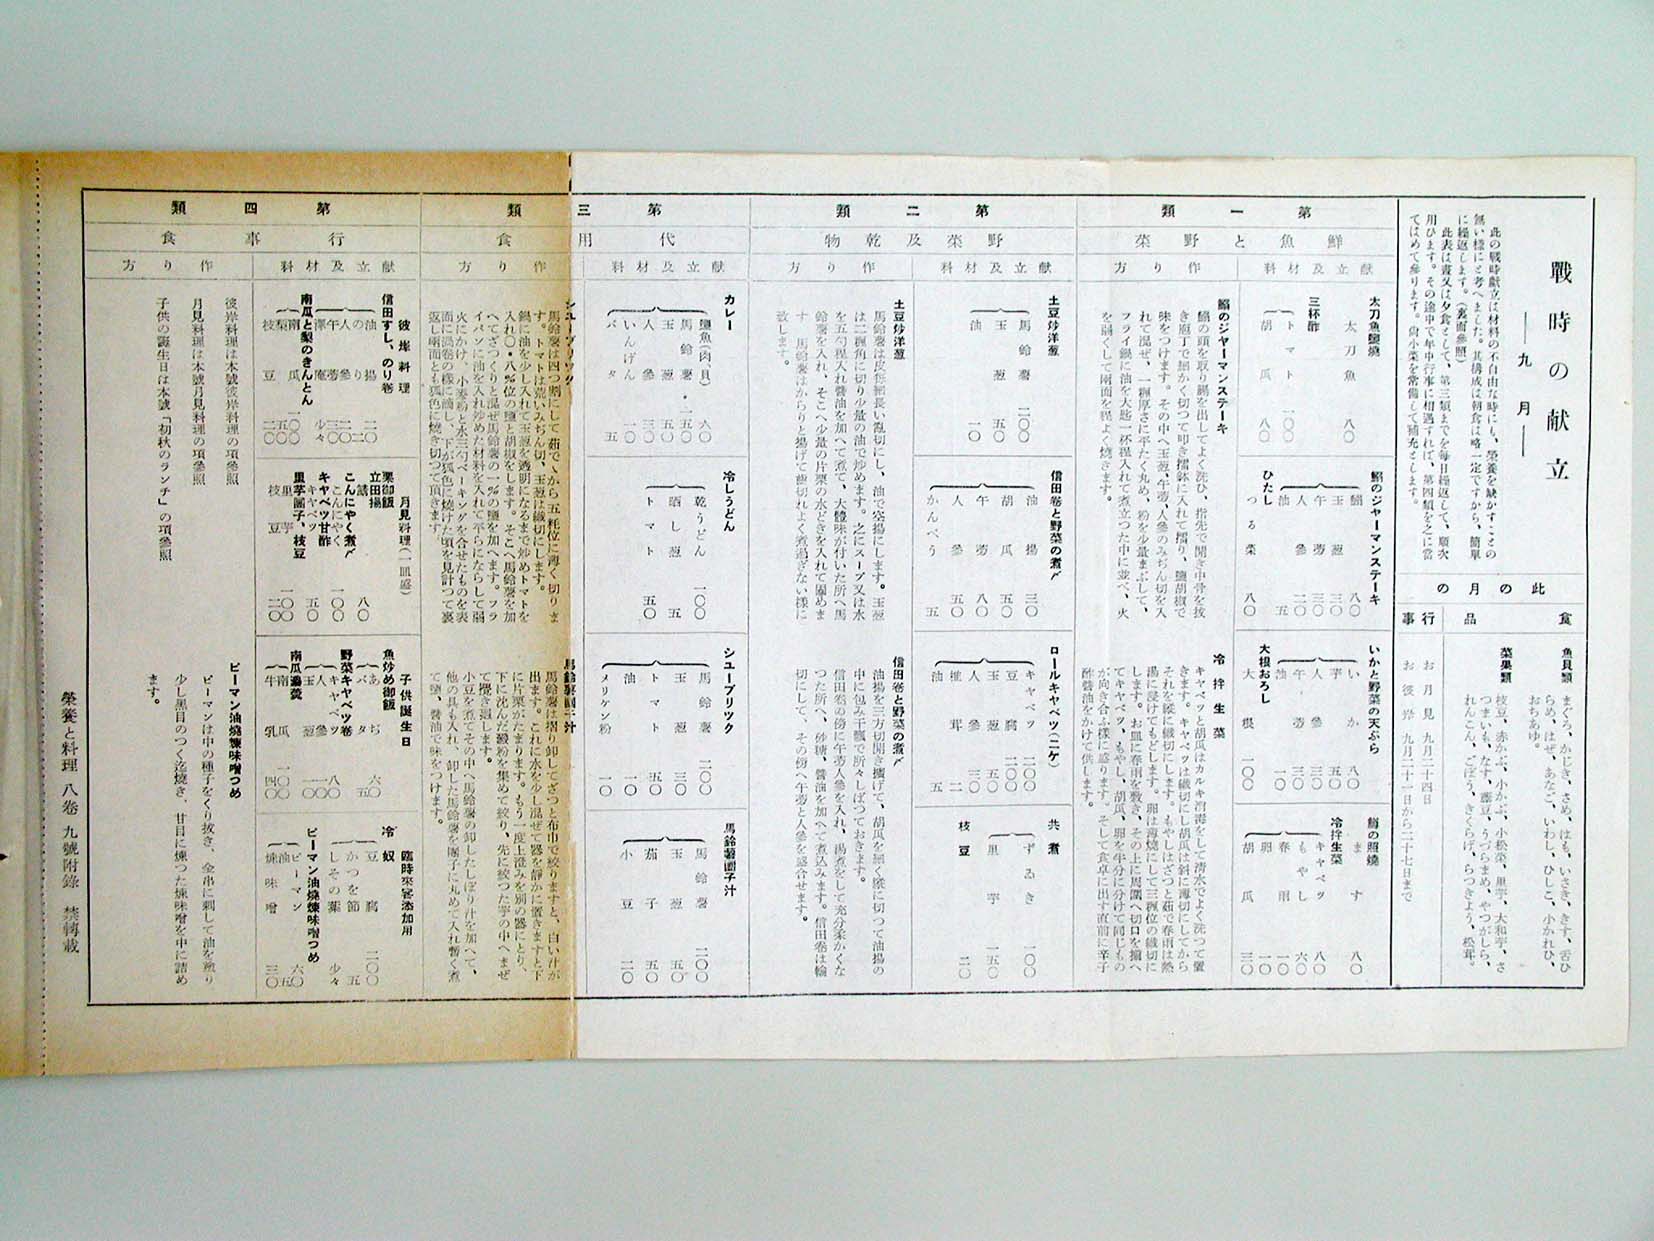 戰時の献立
――九月――
此の戰時献立は材料の不自由な時にも、榮養を缺かすことの
無い樣にと考へました。其構成は朝食は略一定ですから、簡單
に繰返します。(裏面參照)
此表は晝又は夕食として、第三類までを毎日繰返して、順次
用ひます。その途中で年中行事に相遇すれば、第四類を之に當
てはめて參ります。尙小菜を常備して補充とします。
此の月の
食品
魚貝類
まぐろ、かじき、さめ、はも、いさき、きす、舌ひ
らめ、はぜ、あなご、いわし、ひしこ、小かれひ、
おちあゆ。
菜果類
枝豆、赤かぶ、小かぶ、小松菜、里芋、大和芋、さ
つまいも、なす、藤豆、うづらまめ、やつがしら、
れんこん、ごぼう、きくらげ、らつきよう、松茸。
行事
お月見 九月二十四日
お彼岸 九月二十一日から二十七日まで
第一類
鮮魚と野菜
献立及材料
太刀魚鹽燒
太刀魚 八〇
三杯酢
トマト 一〇〇
胡瓜 八〇
鰯のジャーマンステーキ
鰯 八〇
玉葱 三〇
牛蒡 三〇
人參 二〇
油 五
ひたし
つる菜 八〇
いかと野菜の天ぷら
いか 八〇
芋 五〇
人參 三〇
牛蒡 三〇
油 一〇
大根おろし
大根 一〇〇
鱒の照燒
ます 八〇
冷拌生菜
キャベツ 八〇
もやし 六〇
春雨 一〇
卵 一〇
胡瓜 三〇
作り方
鰯のジャーマンステーキ
鰯の頭を取り腸を出してよく洗ひ、指先で開き中骨を抜
き庖丁で細かく切つて叩き擂鉢に入れて擂り、鹽胡椒で
味をつけます。その中へ玉葱、牛蒡、人參のみぢん切を入
れて混ぜ、一糎厚さに平たく丸め、粉を少量まぶして、
フライ鍋に油を大匙一杯程入れて煮立つた中に並べ、火
を弱くして兩面を程よく燒きます。
冷拌生菜
キャベツと胡瓜はカルキ消毒をして清水でよく洗つて置
きます。キャベツは纎切にし胡瓜は斜に薄切にしてから
それを縱に纎切にします。もやしはざつと茹で春雨は熱
湯に浸けてもどします。卵は薄燒にして三糎位の纎切に
します。お皿に春雨を敷き、その上に周圍へ切口を揃へ
てキャベツ、もやし、胡瓜、卵を半分に分けて同じもの
が向き合ふ樣に盛ります。そして食卓に出す直前に辛子
酢醬油をかけて供します。
第二類
野菜及乾物
献立及材料
土豆炒洋葱
馬鈴薯 一五〇
玉葱 五〇
油 一〇
信田卷と野菜の煮〆
油揚 三〇
胡瓜 五〇
牛蒡 八〇
人參 五〇
かんぺう 五
ロールキャベツ(二ケ)
キャベツ 二〇〇
豆腐 一〇〇
玉葱 五〇
人參 三〇
椎茸 二
油 五
共煮
ずゐき 一〇〇
里芋 一五〇
枝豆 二〇
作り方
土豆炒洋葱
馬鈴薯は皮を剝き細長い亂切にし、油で空揚にします。玉葱
は二糎角に切り少量の油で炒めます。之にスープ又は水
を五勺程入れ醬油を加へて煮て、大體味が付いた所へ馬
鈴薯を入れ、そこへ少量の片栗の水どきを入れて固めま
す。馬鈴薯はからりと揚げて齒切れよく煮過ぎない樣に
致します。
信田卷と野菜の煮〆
油揚を三方切開き擴げて、胡瓜を細く縱に切つて油揚の
中に包み干瓢で所々しばつておきます。
信田卷の傍に牛蒡人參を入れ、湯煮をして充分柔かくな
つた所へ、砂糖、醬油を加へて煮込みます。信田卷は輪
切にして、その傍へ牛蒡と人參を盛合せます。
第三類
代用食
献立及材料
カレー
鹽魚(肉貝) 六〇
馬鈴薯 一五〇
玉葱 五〇
人參 三〇
いんげん 一〇
バタ 五
冷しうどん
乾うどん 一〇〇
晒し葱 五
トマト 五〇
シューブリック
馬鈴薯 二〇〇
玉葱 三〇
トマト 五〇
油 一〇
メリケン粉 一〇
馬鈴薯團子汁
馬鈴薯 二〇〇
玉葱 五〇
茄子 五〇
小豆 二〇
作り方
シューブリック
馬鈴薯は四つ割にして茹でゝから五粍位に薄く切りま
す。トマトは荒いみぢん切、玉葱は纎切にします。
鍋に油を少し入れて玉葱を透明になるまで炒めトマトを
入れ〇・八%位の鹽と胡椒をします。そこへ馬鈴薯を加
へてざつくりと混ぜ馬鈴薯の一%の鹽を加へます。フラ
イパンに油を入れ炒めた材料を入れて平らにならして弱
火にかけ、小麥粉と水三勺ベーキングを合せたものを表
面に渦卷の樣に流し、下が狐色に燒けた頃を見計つて裏
返し兩面とも狐色に燒き切つて頂きます。
馬鈴薯團子汁
馬鈴薯は摺り卸してざつと布巾で絞りますと、白い汁が
出ます。これに水を少し混ぜて器を靜かに置きますと下
に片栗がたまります。もう一度上澄みを別の器にとり、
下に沈んだ澱粉を集めて絞り、先に絞つた芋の中へまぜ
て攪き廻します。
小豆を煮てその中へ馬鈴薯の卸したしぼり汁を加へて、
他の具も入れ、卸した馬鈴薯を團子に丸めて入れ暫く煮
て鹽、醬油で味をつけます。
第四類
行事食
献立及材料
彼岸料理
信田すし、のり卷
油揚 二〇
のり 二
人參 二〇
牛蒡 三〇
澤庵 少々
南瓜と梨のきんとん
南瓜 一〇〇
梨 五〇
枝豆 二〇
月見料理(一皿盛)
栗御飯
立田揚
鯖 八〇
こんにゃく煮〆
こんにゃく 一〇〇
キャベツ甘酢
キャベツ 五〇
里芋團子、枝豆
里芋 一〇〇
枝豆 二〇
子供誕生日
魚炒め御飯
あぢ 六〇
バタ 五
野菜キャベツ卷
キャベツ 八〇
人參 一〇
玉葱 一〇
南瓜羹
南瓜 一〇〇
牛乳 四〇
臨時來客添加用
冷奴
豆腐 二〇〇
かつを節 五
しその葉 少々
ピーマン油燒煉味噌つめ
ピーマン 六〇
油 五
煉味噌 三〇
作り方
彼岸料理は本號彼岸料理の項參照
月見料理は本號月見料理の項參照
子供の誕生日は本號「初秋のランチ」の項參照
ピーマン油燒煉味噌つめ
ピーマンは中の種子をくり抜き、金串に刺して油を煎り
少し黑目のつく迄燒き、甘目に煉つた煉味噌を中に詰め
ます。
榮養と料理 八卷 九號附錄 禁轉載